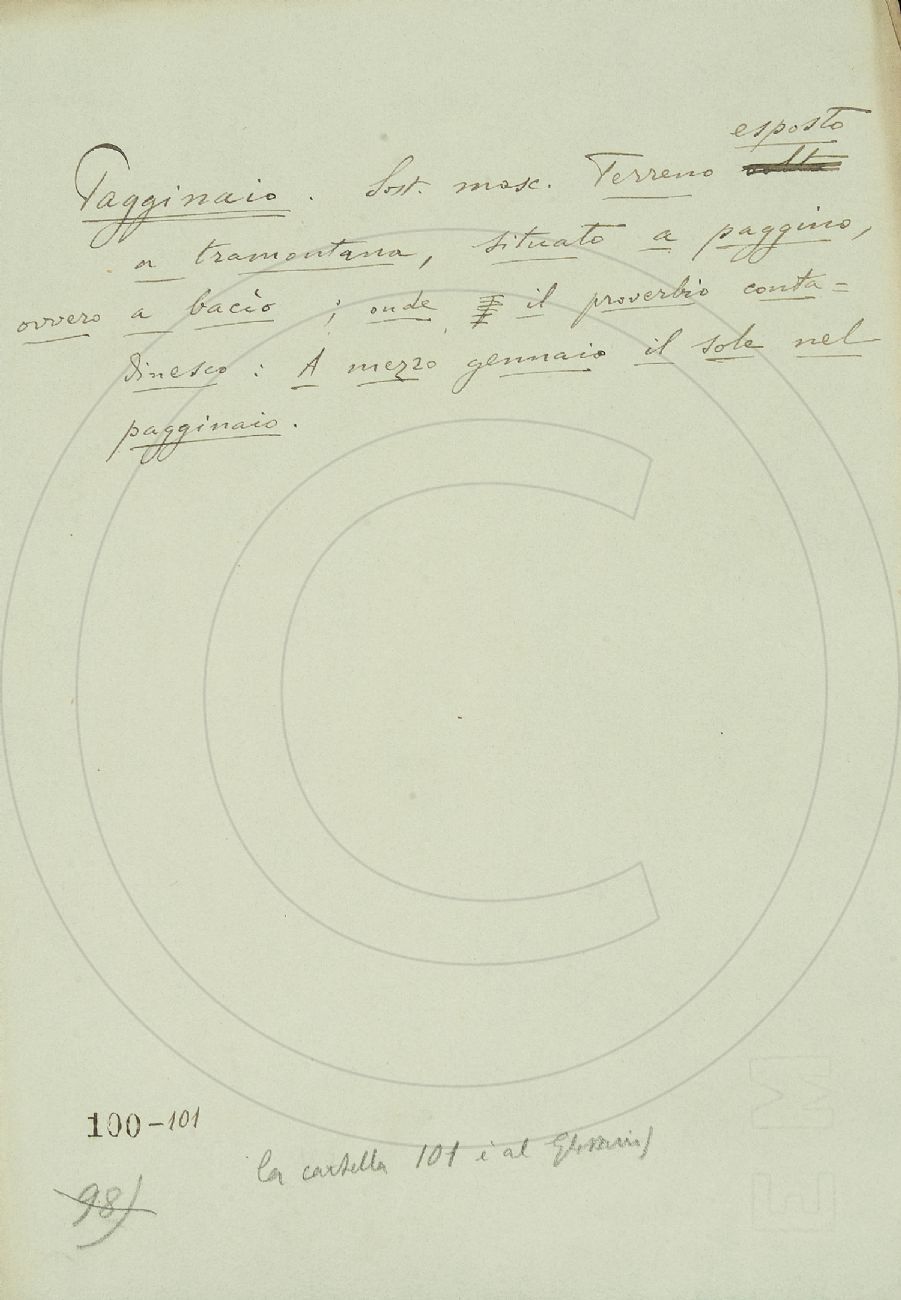 esposto
Pagginaio. Sost. masc. Terreno volto
a tramontana, situato a paggino,
ovvero a bacìo; onde il proverbio conta=
dinesco: A mezzo gennaio il sole nel
pagginaio.
100-101
la cartella 101 è al Glossario
98)